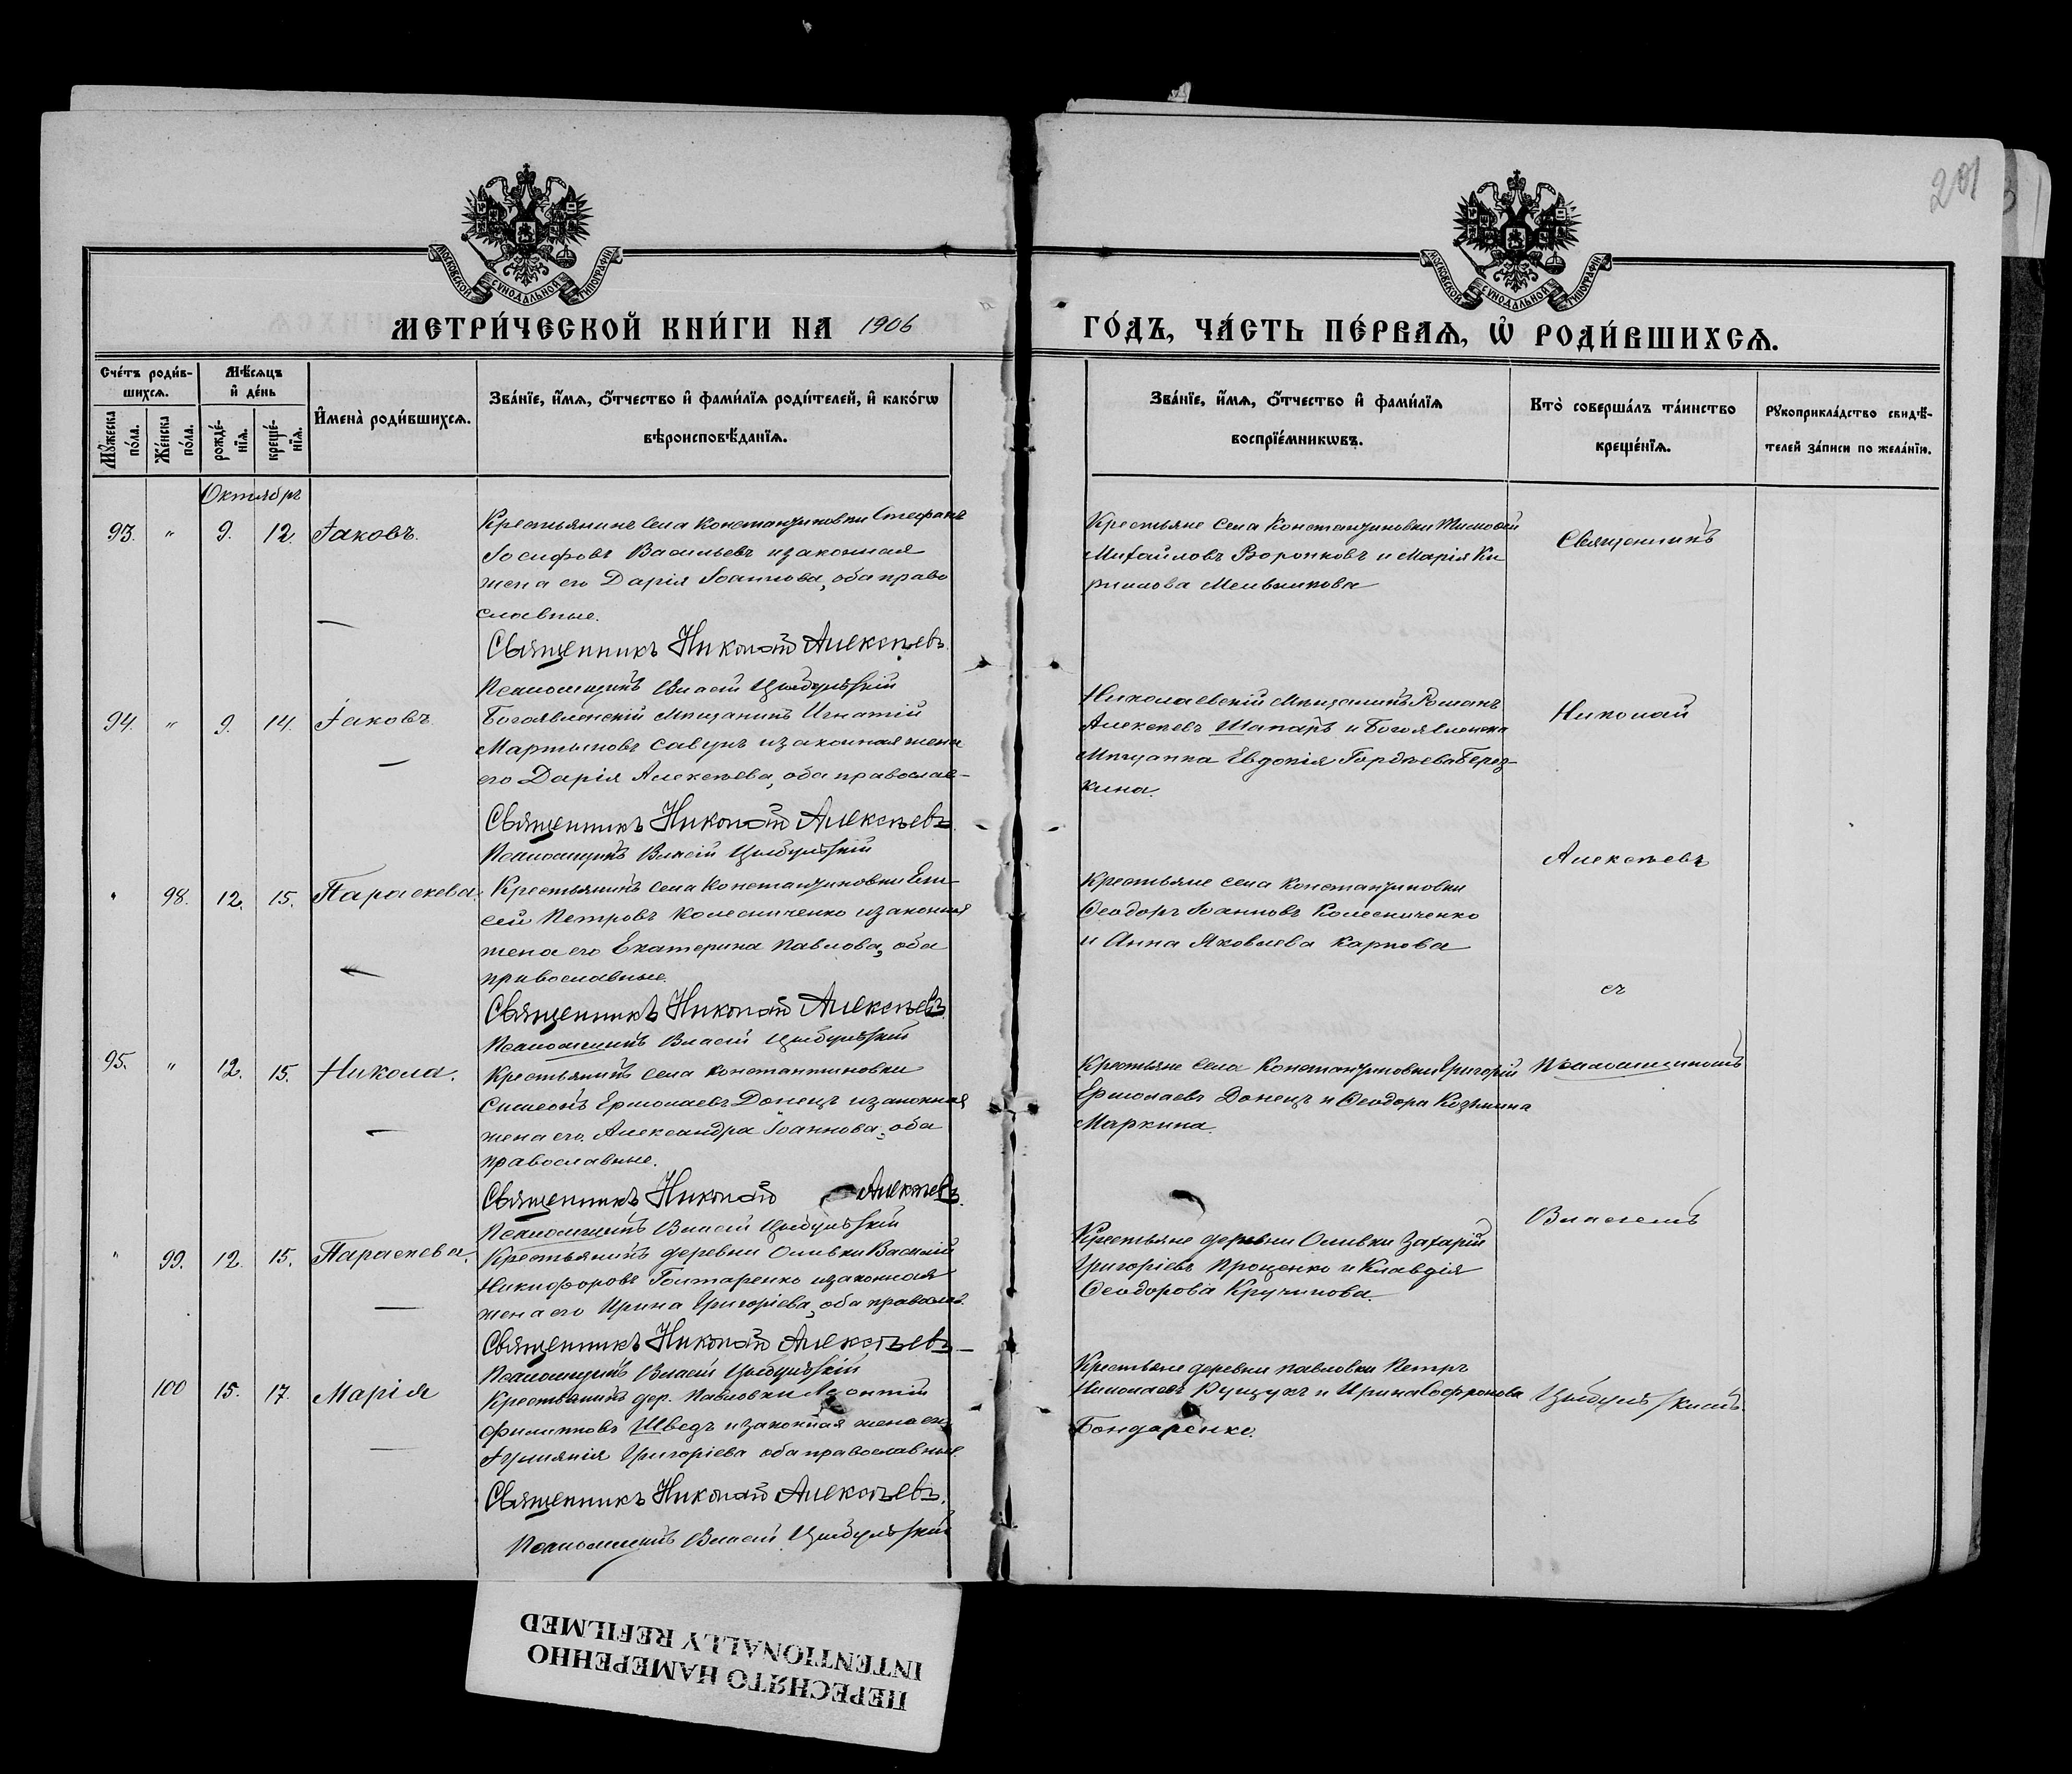 201
МОСКОВСКОЙ СѴНОДАЛЬНОЙ ТИПОГРАФІИ
МОСКОВСКОЙ СѴНОДАЛЬНОЙ ТИПОГРАФІИ
МЕТРИ́ЧЕСКОЙ КНИ́ГИ НА 1906
ГО́ДЪ, ЧА́СТЬ ПЕ́РВАѦ, Ѡ҆ РОДИ́ВШИХСѦ.
Сче́тъ роди́в-
шихсѧ.
Мꙋ́жеска по́ла.
Же́нска по́ла.
Мѣ́сѧцъ
и҆ де́нь
рожде́-
нїѧ.
креще́-
нїѧ.
И҆мена̀ роди́вшихсѧ.
Зва́нїе, и҆́мѧ, ѻ҆́тчество и҆ фами́лїѧ роди́телей, и҆ како́гѡ
вѣроисповѣ́данїѧ.
Зва́нїе, и҆́мѧ, ѻ҆́тчество и҆ фами́лїѧ
воспрїе́мникѡвъ.
Кто̀ соверша́лъ та́инство
креще́нїѧ.
Рꙋкоприкла́дство свидѣ́-
телей за́писи по жела́нїю.
Октябрь
93. " 9. 12. Іаковъ.
Крестьянинъ села Константиновки Стефанъ
Іосифовъ Васильевъ и законная
жена его Дарія Іоаннова, оба право
славные.
Священникъ Николай Алексѣевъ
Псаломщикъ Власій Цыбульскій
Крестьяне села Константиновки Тимофей
Михайловъ Воронковъ и Марія Ки
риллова Мельникова
Священникъ
94. " 9. 14. Іаковъ
Богоявленскій мѣщанинъ Игнатій
Мартыновъ Савунъ и законная жена
его Дарія Алексѣева, оба православ-
Священникъ Николай Алексѣевъ
Псаломщикъ Власій Цыбульскій
Николаевскій мѣщанинъ Романъ
Алексѣевъ Шапарь и Богоявленска
мѣщанка Евдокія Гордѣева Берез-
кина.
Николай
Алексѣевъ
" 98. 12. 15. Параскева.
Крестьянинъ села Константиновки Ели
сей Петровъ Колесниченко и законная
жена его Екатерина Павлова, оба
православные.
Священникъ Николай Алексѣевъ
Псаломщикъ Власій Цыбульскій
Крестьяне села Константиновки
Ѳеодоръ Іоанновъ Колесниченко
и Анна Яковлева Карпова
съ
95. " 12. 15. Никола.
Крестьянинъ села Константиновки
Симеонъ Ермолаевъ Донецъ и законная
жена его Александра Іоаннова, оба
православные.
Священникъ Николай Алексѣевъ
Псаломщикъ Власій Цыбульскій
Крестьяне села Константиновки Григорій
Ермолаевъ Донецъ и Ѳеодора Козьмина
Маркина.
Псаломщикомъ
Власіемъ
" 99. 12. 15. Параскева.
Крестьянинъ деревни Оливки Василій
Никифоровъ Гонтаренко и законная
жена его Ирина Григорьева, оба православ.
Священникъ Николай Алексѣевъ
Псаломщикъ Власій Цыбульскій
Крестьяне деревни Оливки Захарій
Григоріевъ Проценко и Клавдія
Ѳеодорова Кручинова.
100 15. 17. Марія
Крестьянинъ дер. Павловки Леонтій
Филипповъ Шведъ и законная жена его
Агрипина Григоріева оба православные.
Священникъ Николай Алексѣевъ.
Псаломщикъ Власій Цыбульскій
Крестьяне деревни Павловки Петръ
Николаевъ Кущукъ и Ирина Софронова
Бондаренко.
Цыбульскимъ.
ПЕРЕСНЯТО НАМЕРЕННО
INTENTIONALLY REFILMED